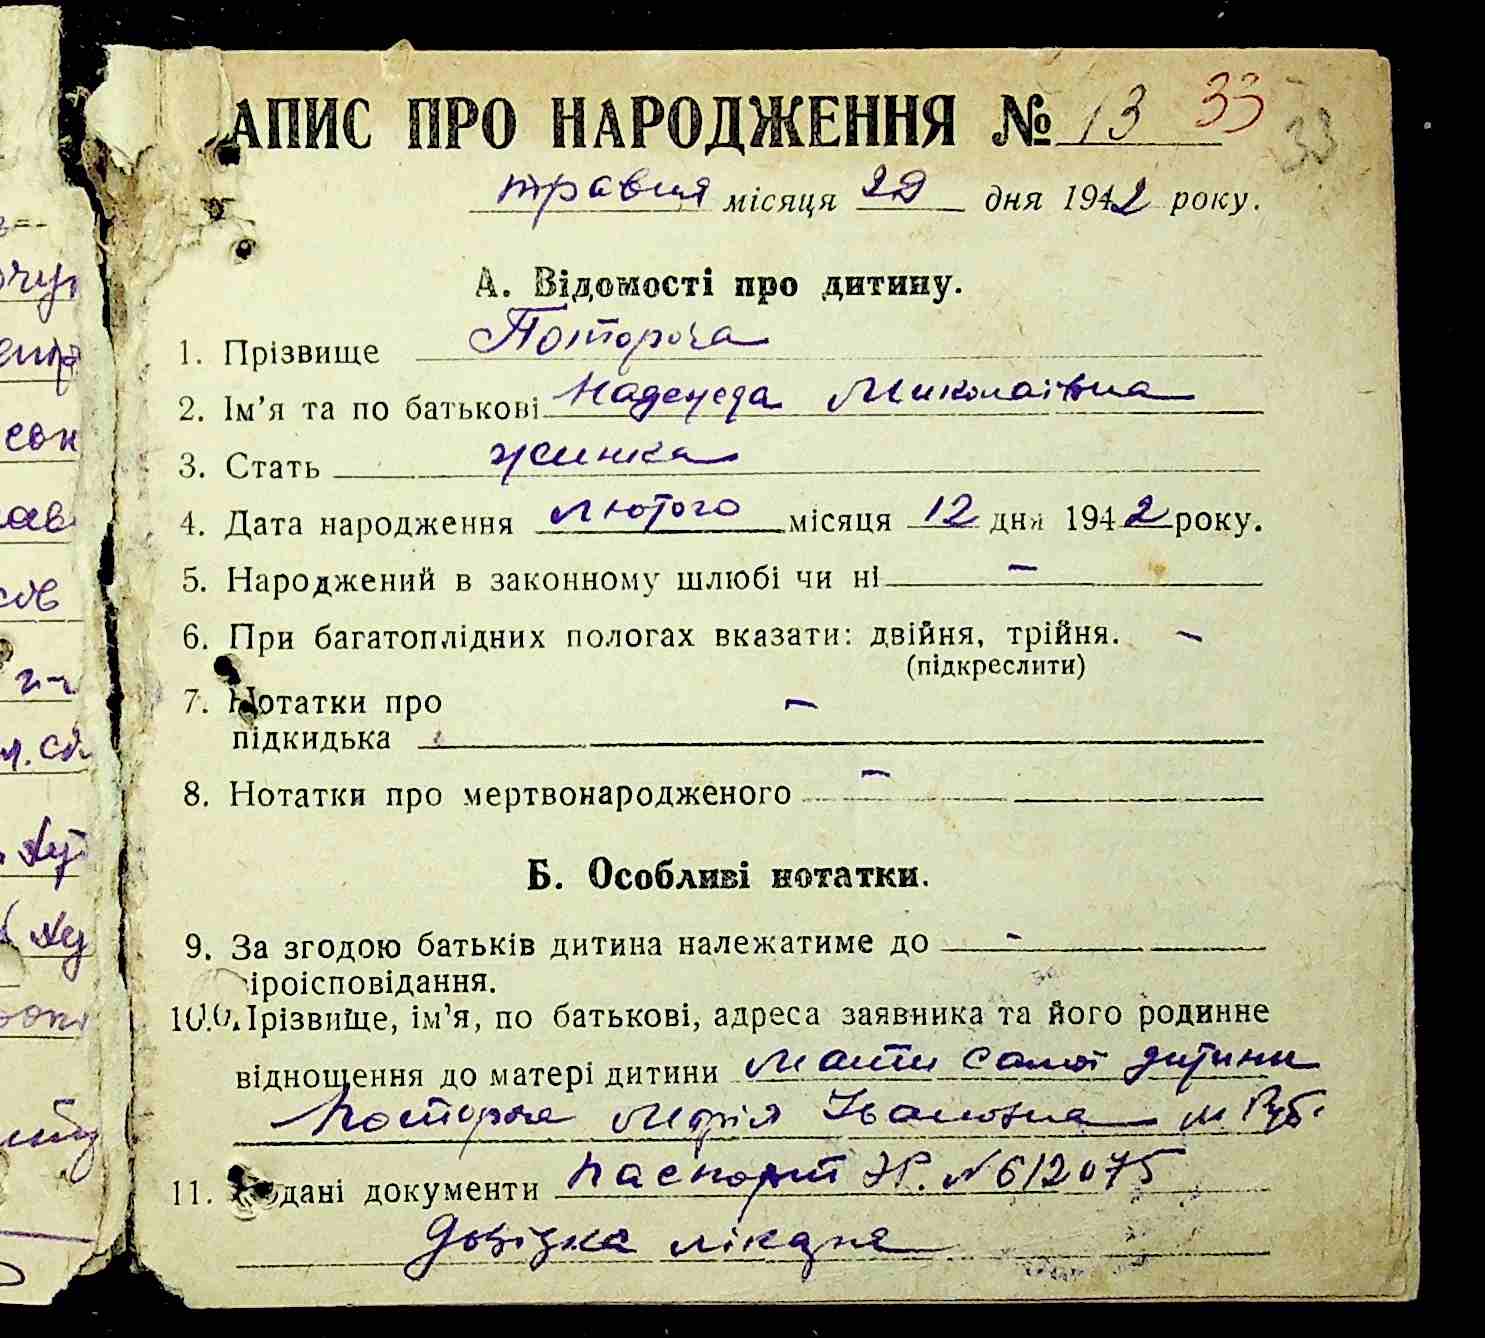 АПИС ПРО НАРОДЖЕННЯ № 13 33 33
травня місяця 29 дня 1942 року.
А. Відомості про дитину.
1. Прізвище Потороча
2. Ім’я та по батькові Надежда Миколаївна
3. Стать жинка
4. Дата народження лютого місяця 12 дня 1942 року.
5. Народжений в законному шлюбі чи ні –
6. При багатоплідних пологах вказати: двійня, трійня. –
(підкреслити)
7. Нотатки про –
підкидька
8. Нотатки про мертвонародженого –
Б. Особливі нотатки.
9. За згодою батьків дитина належатиме до -
віроісповідання.
10. Прізвище, ім’я, по батькові, адреса заявника та його родинне
відношення до матері дитини Мати самої дитини
Потороча Марія Івановна м Руб.
11. Подані документи паспорт № 612075
Довідка лікаря